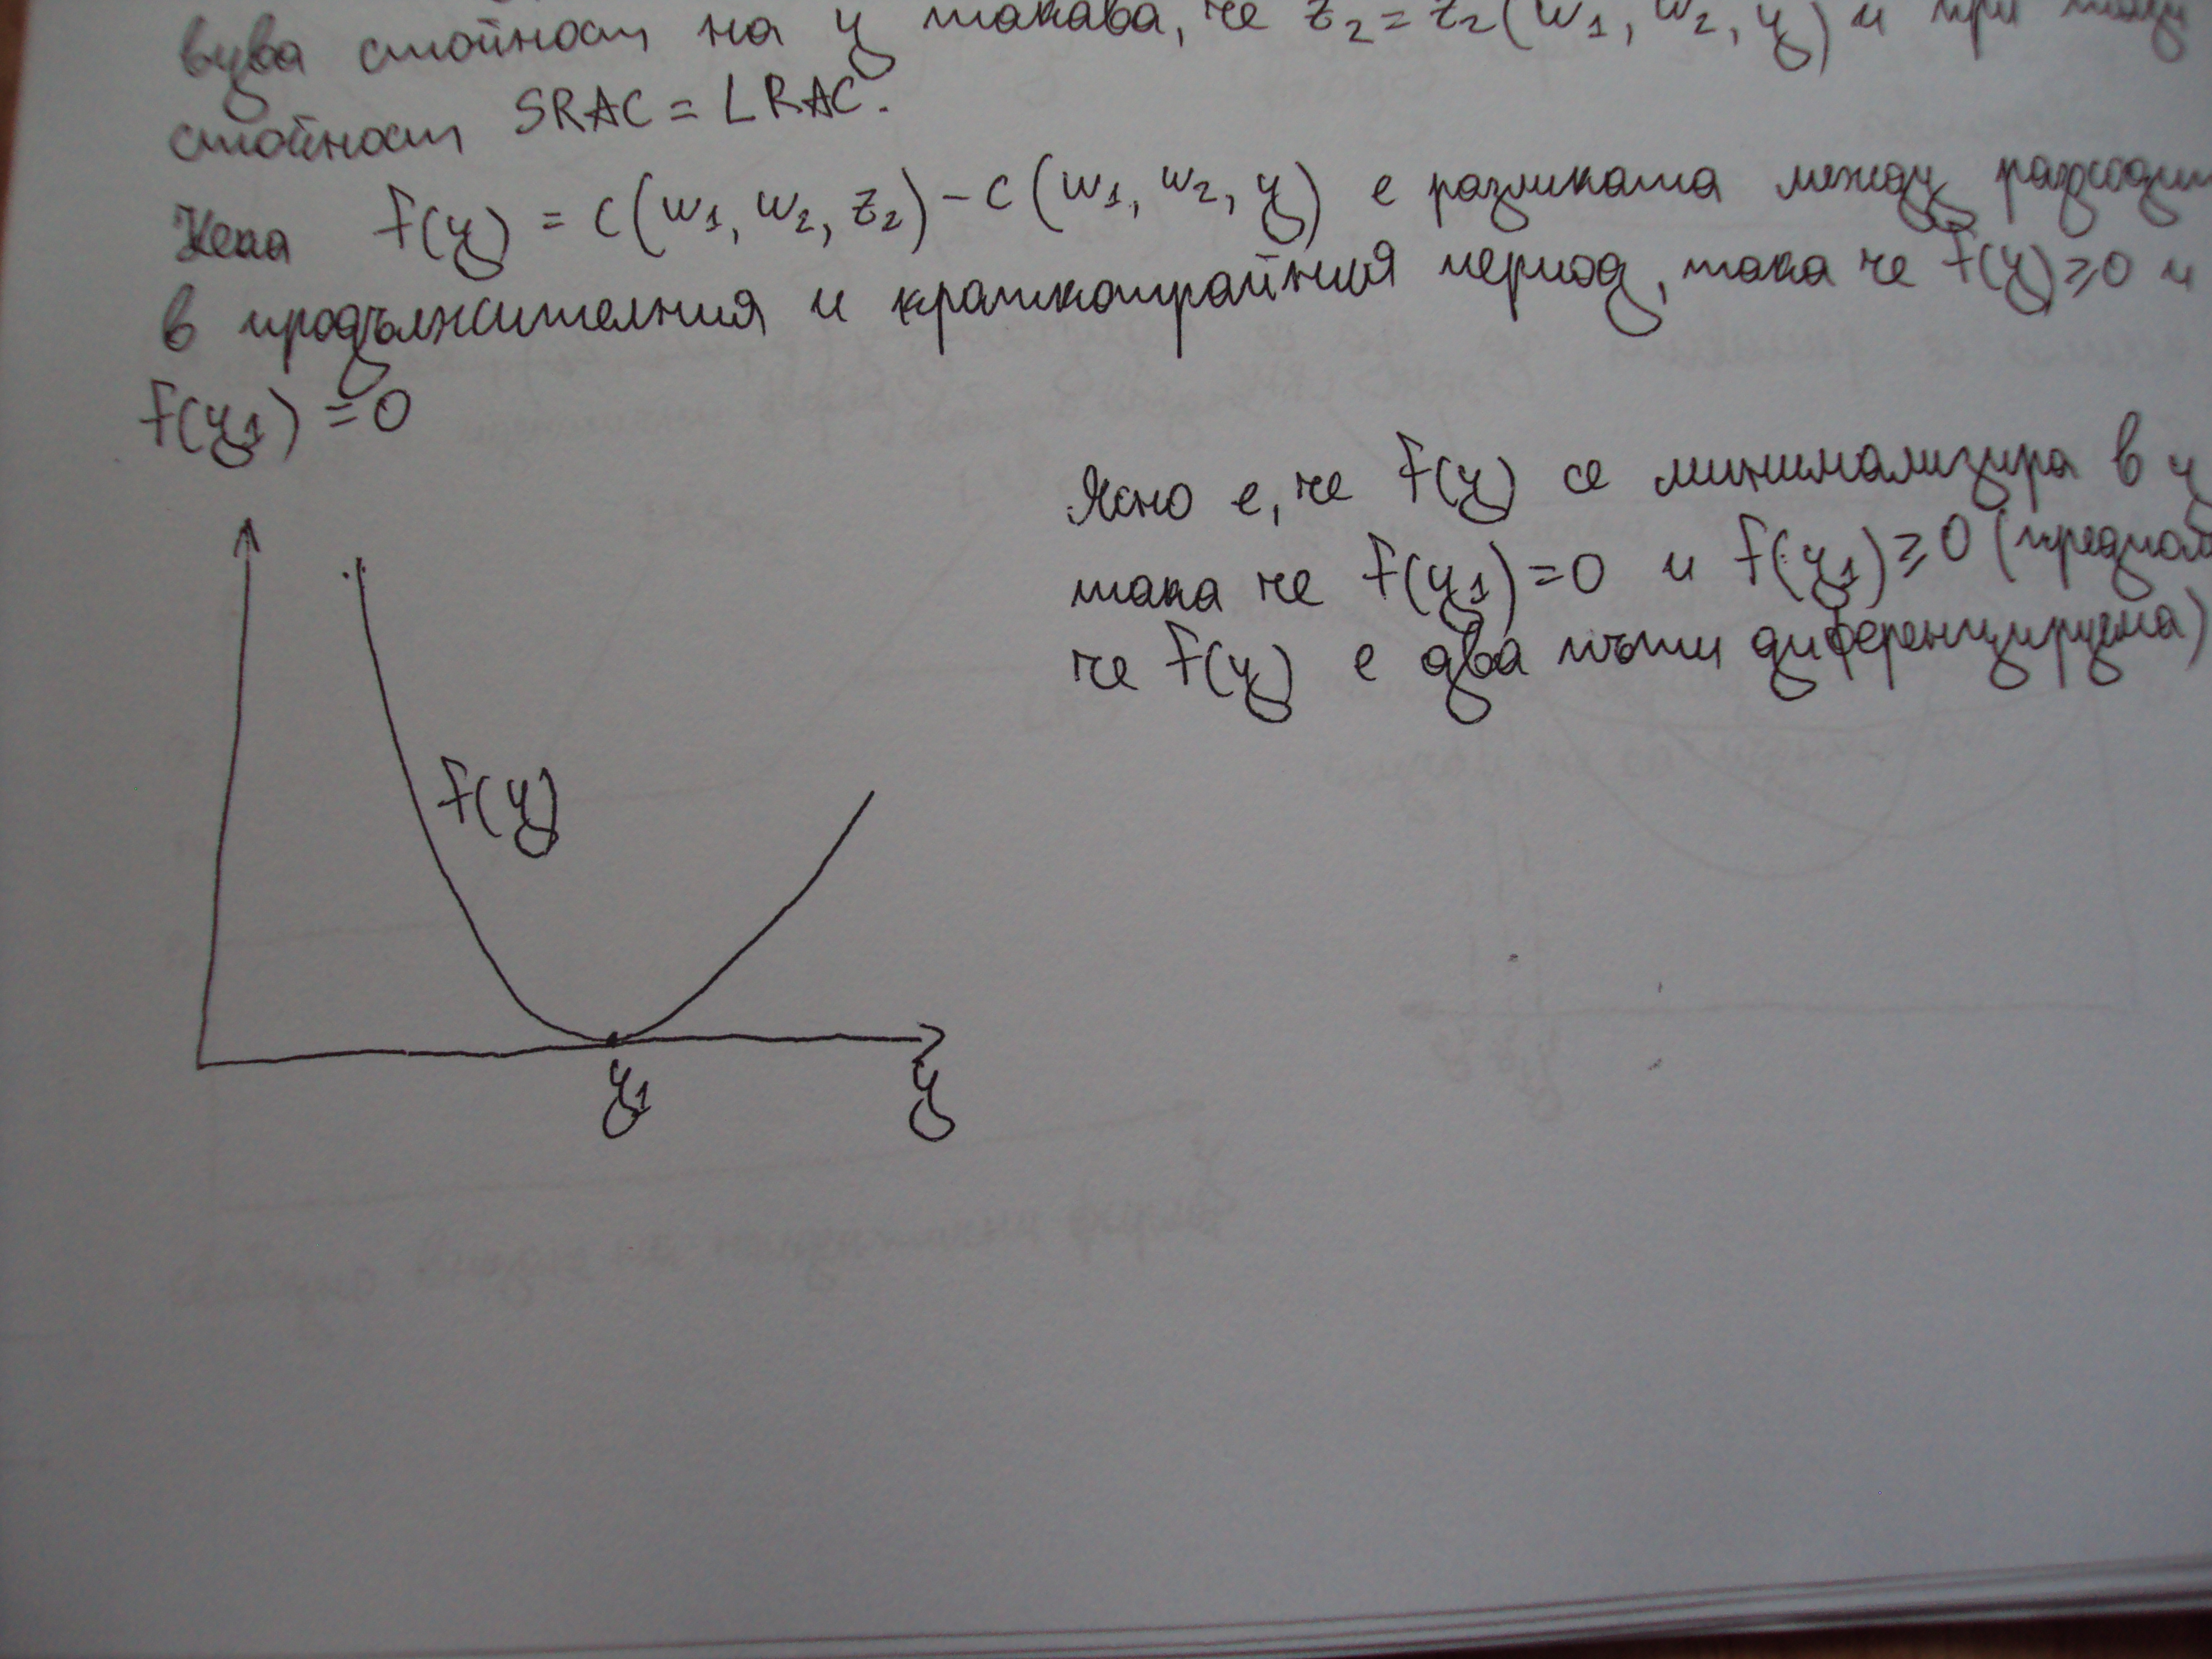 вува стойност на y такава, че z₂ = z₂(w₁, w₂, y) и при тази
стойност SRAC = LRAC.
Нека f(y) = c(w₁, w₂, z₂) - c(w₁, w₂, y) е разликата между разходит
в продължителния и краткотрайния период, така че f(y) ≥ 0 и
f(y₁) = 0
Ясно е, че f(y) се минимализира в y
така че f(y₁) = 0 и f(y₁) ≥ 0 (предпол
че f(y) е два пъти диференцируема)
f(y)
y₁
y